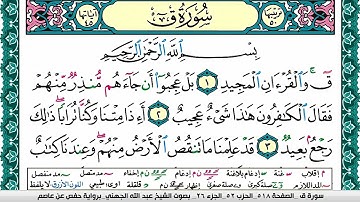 سُورَةُ قٓ
ترتيبها ٥٠
آياتها ٤٥
بِسْمِ ٱللَّهِ ٱلرَّحْمَٰنِ ٱلرَّحِيمِ
قٓ ۚ وَٱلْقُرْءَانِ ٱلْمَجِيدِ ١ بَلْ عَجِبُوٓا۟ أَن جَآءَهُم مُّنذِرٌ مِّنْهُمْ
فَقَالَ ٱلْكَٰفِرُونَ هَٰذَا شَىْءٌ عَجِيبٌ ٢ أَءِذَا مِتْنَا وَكُنَّا تُرَابًا ۖ ذَٰلِكَ
رَجْعٌۢ بَعِيدٌ ٣ قَدْ عَلِمْنَا مَا تَنقُصُ ٱلْأَرْضُ مِنْهُمْ ۖ وَعِندَنَا كِتَٰبٌ
سورة ق - الصفحة ٥١٨ - الحزب ٥٢ - الجزء ٢٦ - بصوت الشيخ عبد الله الجهني - برواية حفص عن عاصم